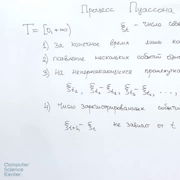 Процесс Пуассона
T = [0, +∞) ξt - число собы
1) За конечное время лишь ко
2) появление нескольких событий одно
3) На непересекающихся промежутка
ξt₁, ξt₂ - ξt₁, ...,
4) Число зарегистрированных событий
ξt+s - ξt не зависит от t
Computer
Science
Center